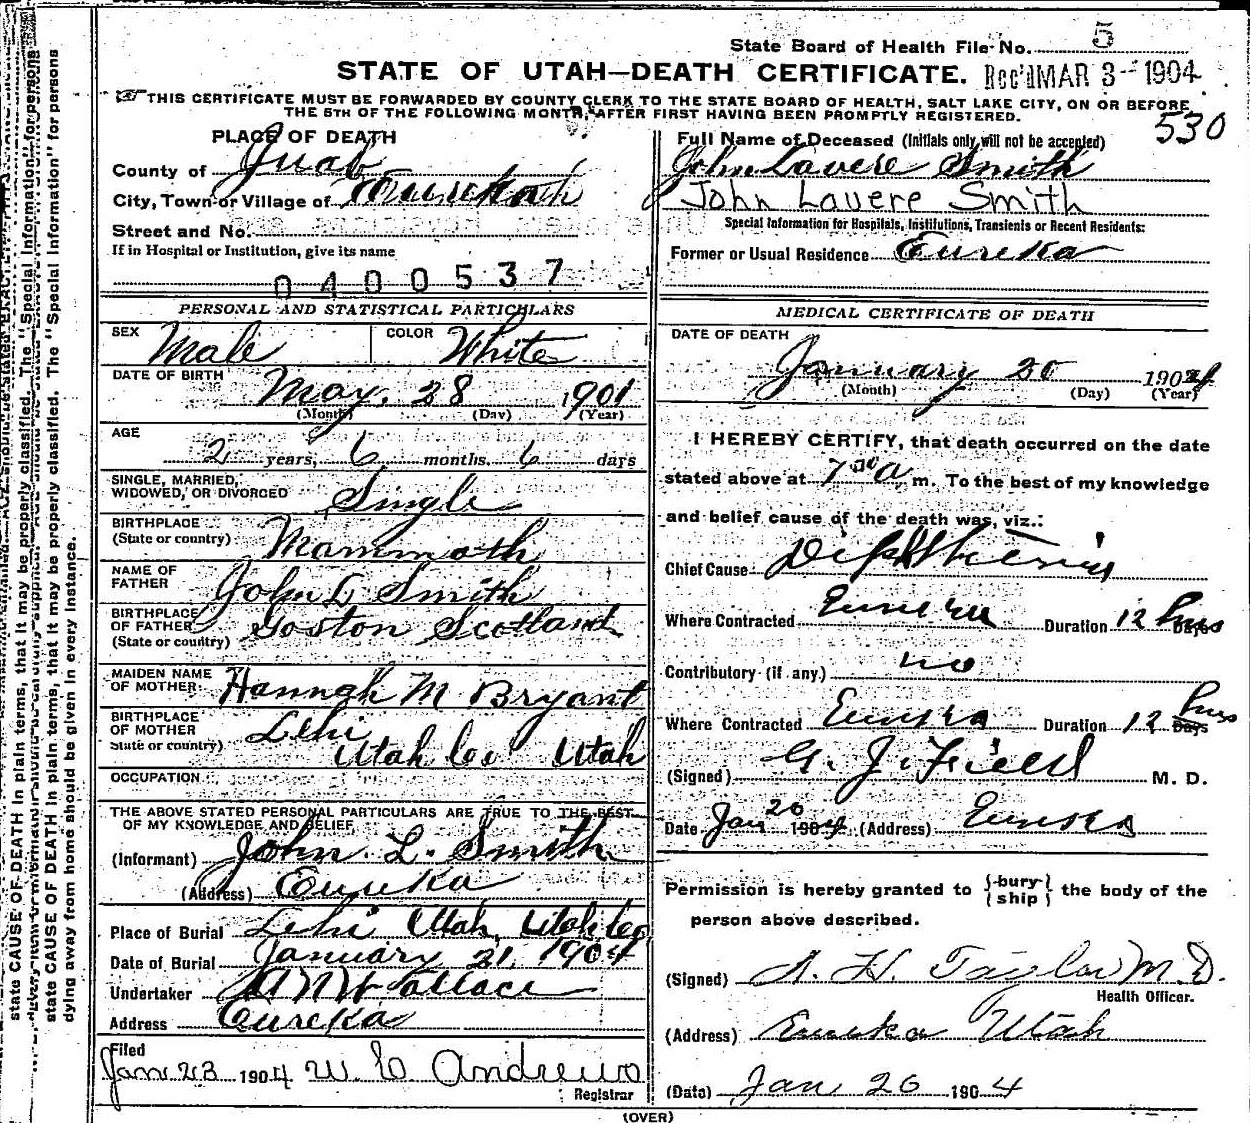 State Board of Health File No. 5
STATE OF UTAH—DEATH CERTIFICATE. Rec'd MAR 3- 1904
THIS CERTIFICATE MUST BE FORWARDED BY COUNTY CLERK TO THE STATE BOARD OF HEALTH, SALT LAKE CITY, ON OR BEFORE
THE 5TH OF THE FOLLOWING MONTH, AFTER FIRST HAVING BEEN PROMPTLY REGISTERED.
530
PLACE OF DEATH
County of Juab
City, Town or Village of
Street and No.
If in Hospital or Institution, give its name
0400537
Full Name of Deceased (Initials only will not be accepted)
John Lavere Smith
John Lavere Smith
Special Information for Hospitals, Institutions, Transients or Recent Residents:
Former or Usual Residence Eureka
PERSONAL AND STATISTICAL PARTICULARS
SEX Male COLOR White
DATE OF BIRTH May. 28 1901
(Month) (Day) (Year)
AGE
2 years, 6 months. 6 days
SINGLE, MARRIED,
WIDOWED, OR DIVORCED Single
BIRTHPLACE
(State or country) Mammoth
NAME OF
FATHER John L Smith
BIRTHPLACE
OF FATHER Goston Scotland
(State or country)
MAIDEN NAME
OF MOTHER Hannah M Bryant
BIRTHPLACE
OF MOTHER Lehi
State or country) Utah Co Utah
OCCUPATION
THE ABOVE STATED PERSONAL PARTICULARS ARE TRUE TO THE BEST
OF MY KNOWLEDGE AND BELIEF
(Informant) John L. Smith
(Address) Eureka
Place of Burial Lehi Utah, Utah Co
Date of Burial January 21, 1904
Undertaker Wallace
Address Eureka
Filed
Jan 23 1904 W. C Andrews
Registrar
MEDICAL CERTIFICATE OF DEATH
DATE OF DEATH
January 20 1904
(Month) (Day) (Year)
I HEREBY CERTIFY, that death occurred on the date
stated above at 7 00 a m. To the best of my knowledge
and belief cause of the death was, viz.:
Chief Cause Diphtheria
Where Contracted Eureka Duration 12 hrs Days
Contributory (if any) no
Where Contracted Eureka Duration 12 hrs Days
(Signed) G. J. Field M. D.
Date Jan 20 1904 (Address) Eureka
Permission is hereby granted to {bury ship} the body of the
person above described.
(Signed) A. H. Taylor M.D.
Health Officer.
(Address) Eureka Utah
(Date) Jan 26 1904
(OVER)
state CAUSE OF DEATH in plain terms, that it may be properly classified. The "Special Information" for persons
dying away from home should be given in every instance.